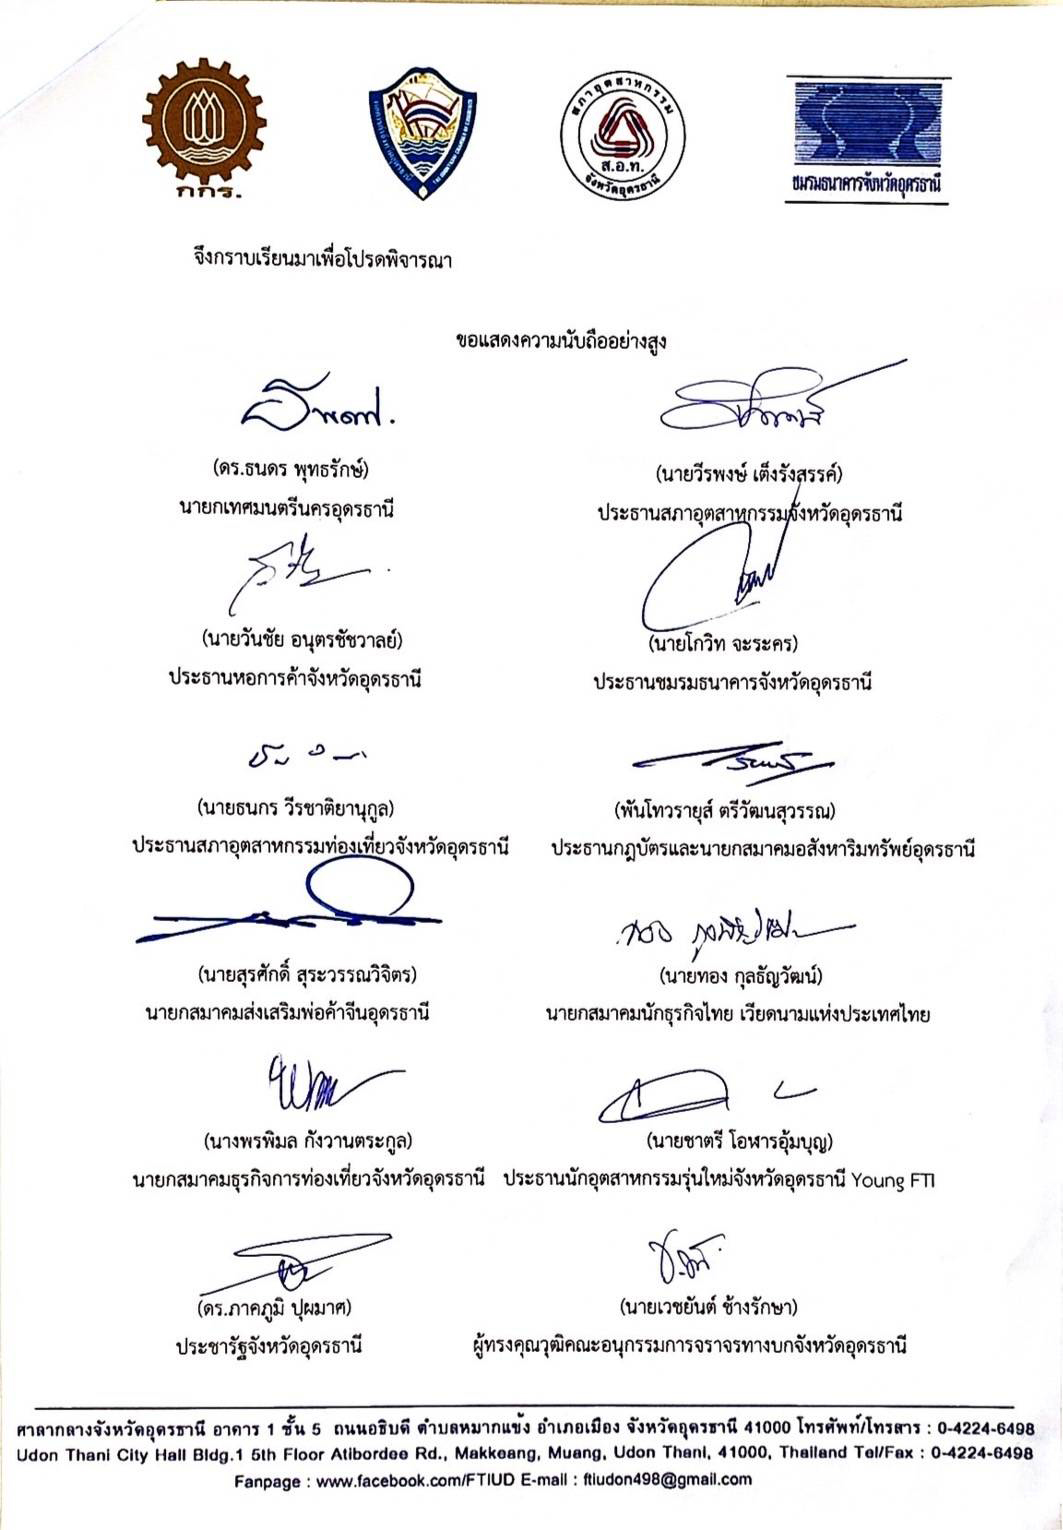 กกร.
สภาอุตสาหกรรม
ส.อ.ท.
จังหวัดอุดรธานี
ชมรมธนาคารจังหวัดอุดรธานี
จึงกราบเรียนมาเพื่อโปรดพิจารณา
ขอแสดงความนับถืออย่างสูง
(ดร.ธนดร พุทธรักษ์) (นายวีรพงษ์ เต็งรังสรรค์)
นายกเทศมนตรีนครอุดรธานี ประธานสภาอุตสาหกรรมจังหวัดอุดรธานี
(นายวันชัย อนุตรชัชวาลย์) (นายโกวิท จะระคร)
ประธานหอการค้าจังหวัดอุดรธานี ประธานชมรมธนาคารจังหวัดอุดรธานี
(นายธนกร วีรชาติยานุกูล) (พันโทวรายุส์ ตรีวัฒนสุวรรณ)
ประธานสภาอุตสาหกรรมท่องเที่ยวจังหวัดอุดรธานี ประธานกฎบัตรและนายกสมาคมอสังหาริมทรัพย์อุดรธานี
(นายสุรศักดิ์ สุระวรรณวิจิตร) (นายทอง กุลธัญวัฒน์)
นายกสมาคมส่งเสริมพ่อค้าจีนอุดรธานี นายกสมาคมนักธุรกิจไทย เวียดนามแห่งประเทศไทย
(นางพรพิมล กังวานตระกูล) (นายชาตรี โอฬารอุ้มบุญ)
นายกสมาคมธุรกิจการท่องเที่ยวจังหวัดอุดรธานี ประธานนักอุตสาหกรรมรุ่นใหม่จังหวัดอุดรธานี Young FTI
(ดร.ภาคภูมิ ปุผมาศ) (นายเวชยันต์ ช้างรักษา)
ประชารัฐจังหวัดอุดรธานี ผู้ทรงคุณวุฒิคณะอนุกรรมการจราจรทางบกจังหวัดอุดรธานี
ศาลากลางจังหวัดอุดรธานี อาคาร 1 ชั้น 5 ถนนอธิบดี ตำบลหมากแข้ง อำเภอเมือง จังหวัดอุดรธานี 41000 โทรศัพท์/โทรสาร : 0-4224-6498
Udon Thani City Hall Bldg.1 5th Floor Atibordee Rd., Makkeang, Muang, Udon Thani, 41000, Thailand Tel/Fax : 0-4224-6498
Fanpage : www.facebook.com/FTIUD E-mail : ftiudon498@gmail.com